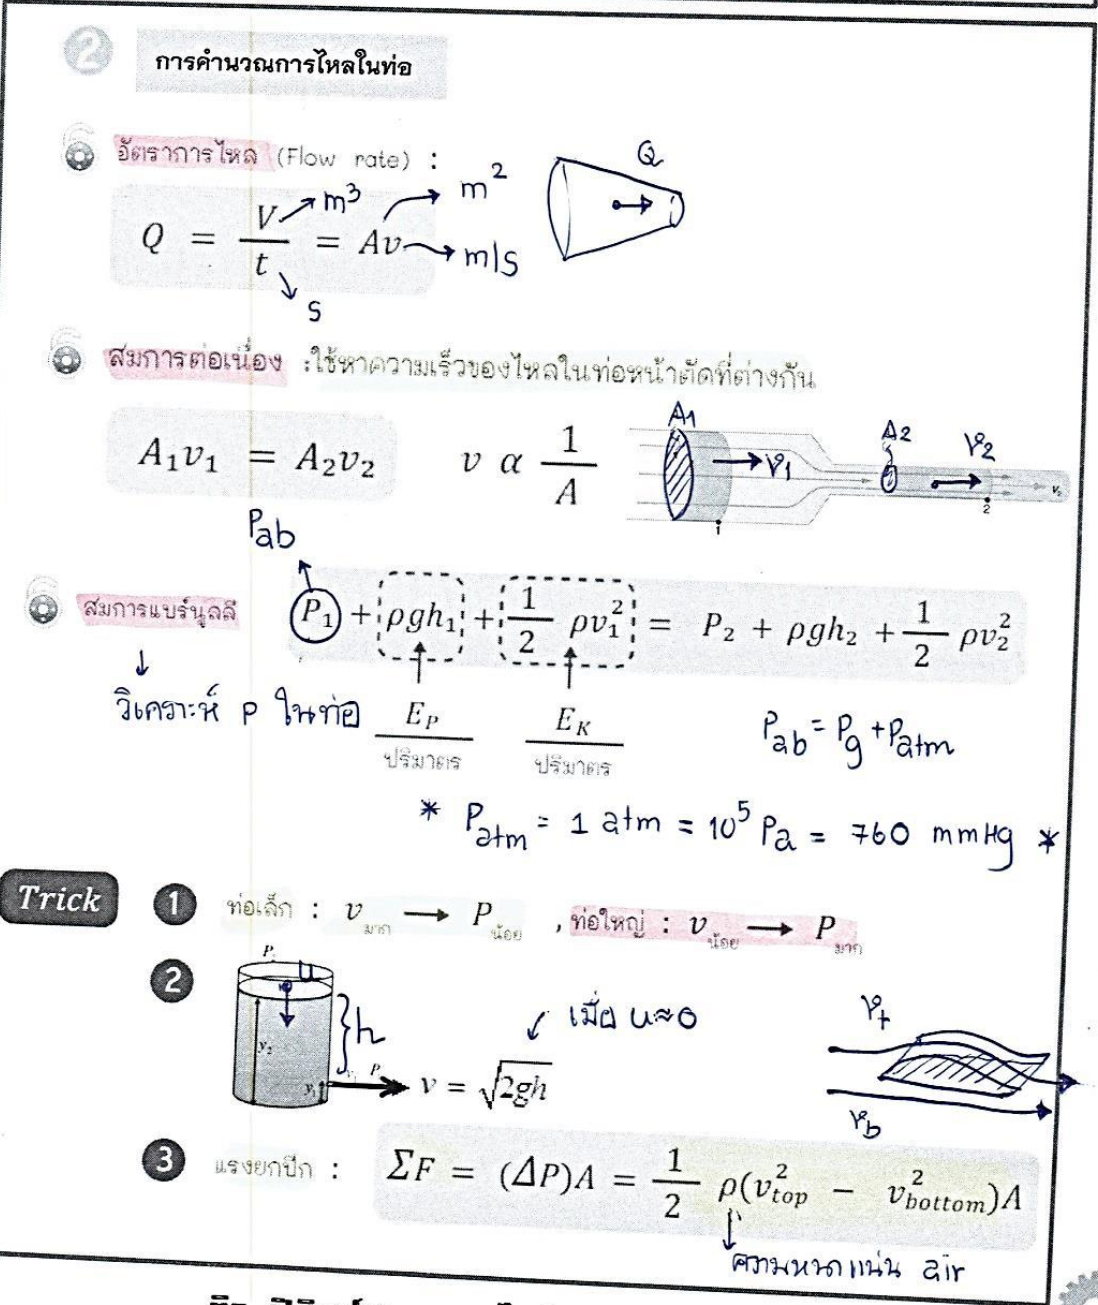 2 การคำนวณการไหลในท่อ
อัตราการไหล (Flow rate) :
Q = V/t = Av
m³
m²
m/s
s
Q
สมการต่อเนื่อง : ใช้หาความเร็วของไหลในท่อหน้าตัดที่ต่างกัน
A₁v₁ = A₂v₂ v α 1/A
A₁ v₁ A₂ v₂ v₂
1 2
Pab
สมการแบร์นูลลี P₁ + ρgh₁ + 1/2 ρv₁² = P₂ + ρgh₂ + 1/2 ρv₂²
วิเคราะห์ P ในท่อ E_P/ปริมาตร E_K/ปริมาตร
Pab = Pg + Patm
* Patm = 1 atm = 10⁵ Pa = 760 mmHg *
Trick 1 ท่อเล็ก : v มาก → P น้อย , ท่อใหญ่ : v น้อย → P มาก
2 u h y₂ y₁
เมื่อ u≈0
v = √2gh
v_t
v_b
3 แรงยกปีก : ΣF = (ΔP)A = 1/2 ρ(v²top − v²bottom)A
ความหนาแน่น air